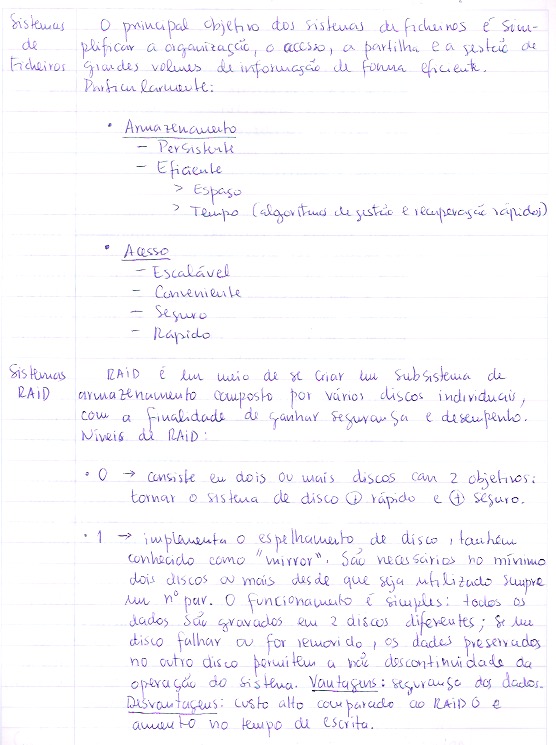 Sistemas de Ficheiros
O principal objetivo dos sistemas de ficheiros é sim-
plificar a organização, o acesso, a partilha e a gestão de
grandes volumes de informação de forma eficiente.
Particularmente:
• Armazenamento
– Persistente
– Eficiente
> Espaço
> Tempo (algoritmo de gestão e recuperação rápidos)
• Acesso
– Escalável
– Conveniente
– Seguro
– Rápido
Sistemas RAID
RAID é um meio de se criar um subsistema de
armazenamento composto por vários discos individuais,
com a finalidade de ganhar segurança e desempenho.
Níveis de RAID:
• 0 → consiste em dois ou mais discos com 2 objetivos:
tornar o sistema de disco ⊕ rápido e ⊕ seguro.
• 1 → implementa o espelhamento de disco, também
conhecido como "mirror". São necessários no mínimo
dois discos ou mais desde que seja utilizado sempre
um nº par. O funcionamento é simples: todos os
dados são gravados em 2 discos diferentes; se um
disco falhar ou for removido, os dados preservados
no outro disco permitem a não descontinuidade da
operação do sistema. Vantagens: segurança dos dados.
Desvantagens: custo alto comparado ao RAID 0 e
aumento no tempo de escrita.